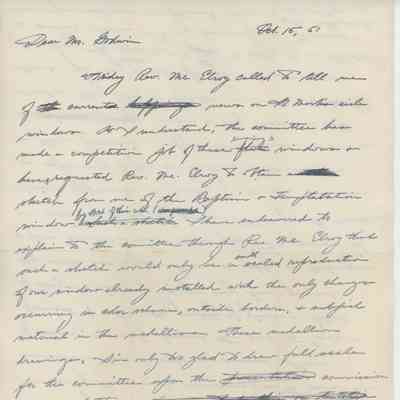 Oct. 15, 51
Dear Mr. Godwin
Friday Rev. Mc Elroy called to tell me
of the current happenings news on St Martins aisle
windows. As I understand, the committee has
made a competitive job of these "five" windows &
has requested Rev. Mc. Elroy to obtain a
sketch from me of the Baptism & Temptation
window. I have endeavored to
explain to the committee through Rev. Mc Elroy that
such a sketch would only be a small scaled reproduction
of our window already installed with the only changes
occurring in color scheme, outside borders, & subject
material in the medallions. These medallion
drawings, I'm only too glad to draw full scale
for the committee upon the commission